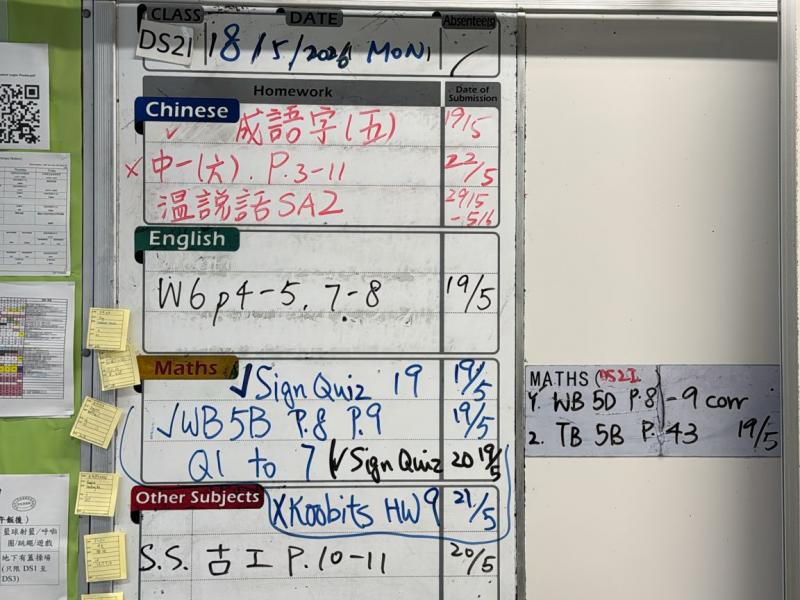 CLASS DATE Absentees
DS21 18/5/2026 MON
Homework Date of Submission
Chinese
✓ 成語字(五) 19/5
×中一(六). P.3-11 22/5
溫說話SA2 29/5 -5/6
English
W6 p4-5, 7-8 19/5
Maths
✓Sign Quiz 19 19/5
✓WB5B P.8 P.9 19/5
Q1 to 7 ✓Sign Quiz 20 19/5
Other Subjects
XKoobits HW9 21/5
S.S. 古工 P.10-11 20/5
MATHS (DS2I
1. WB 5D P.8 -9 corr
2. TB 5B P. 43 19/5
籃球射籃/呼啦
圈/跳繩/遊戲
地下有蓋操場
(只限 DS1 至
DS3)